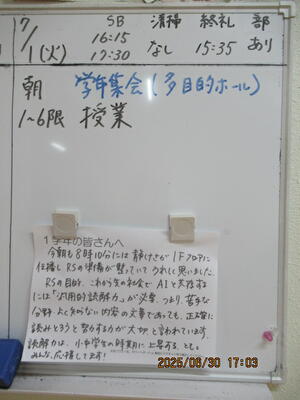 17
7/1(火)
SB 清掃 終礼 部
16:15
17:30 なし 15:35 あり
朝 学年集会(多目的ホール)
1~6限 授業
1学年の皆さんへ
今朝も8時10分には静けさが1Fフロアに
伝播しRSの準備が整っていてうれしく思いました。
RSの目的、これから先の社会でAIと共存する
には「汎用的読解力」が必要。つまり、苦手な
分野、よく知らない内容の文章であっても、正確に
読みとろうと努力する力が大切と言われています。
読解力は、小中学生の時期に上昇する、とも。
みんな、応援してます!
2025/06/30 17:03